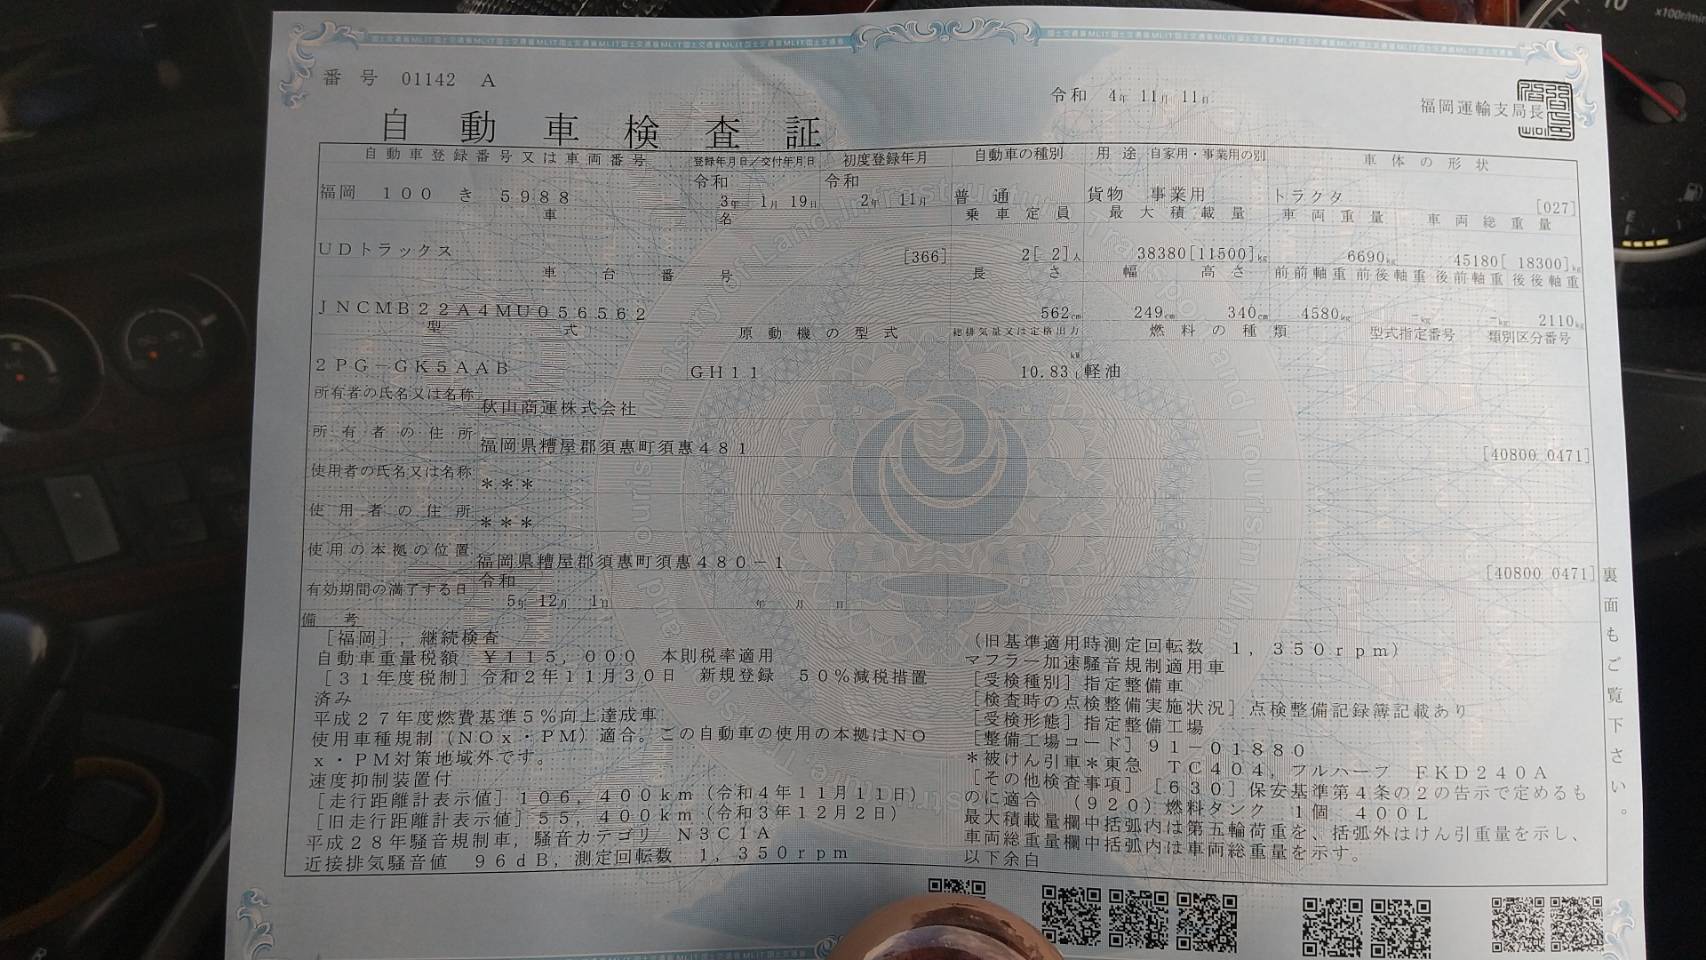 番号 01142 A
令和 4年 11月 11日
福岡運輸支局長
自動車検査証
自動車登録番号又は車両番号 登録年月日/交付年月日 初度登録年月 自動車の種別 用途 自家用・事業用の別 車体の形状
福岡 100 き 5988 令和 3年 1月 19日 令和 2年 11月 普通 貨物 事業用 トラクタ [027]
車名 乗車定員 最大積載量 車両重量 車両総重量
UDトラックス [366] 2[ 2]人 38380[11500]kg 6690kg 45180[ 18300]kg
車台番号 長さ 幅 高さ 前前軸重 前後軸重 後前軸重 後後軸重
JNCMB22A4MU056562 562cm 249cm 340cm 4580kg -kg -kg 2110kg
型式 原動機の型式 総排気量又は定格出力 燃料の種類 型式指定番号 類別区分番号
2PG-GK5AAB GH11 10.83 kW L 軽油
所有者の氏名又は名称 秋山商運株式会社
所有者の住所 福岡県糟屋郡須惠町須惠481 [40800 0471]
使用者の氏名又は名称 ***
使用者の住所 ***
使用の本拠の位置 福岡県糟屋郡須惠町須惠480-1 [40800 0471]
有効期間の満了する日 令和 5年 12月 1日 年 月 日
備考
[福岡],継続検査
自動車重量税額 ¥115,000 本則税率適用
[31年度税制]令和2年11月30日 新規登録 50%減税措置
済み
平成27年度燃費基準5%向上達成車
使用車種規制(NOx・PM)適合。この自動車の使用の本拠はNO
x・PM対策地域外です。
速度抑制装置付
[走行距離計表示値]106,400km(令和4年11月11日)
[旧走行距離計表示値]55,400km(令和3年12月2日)
平成28年騒音規制車,騒音カテゴリ N3C1A
近接排気騒音値 96dB,測定回転数 1,350rpm
(旧基準適用時測定回転数 1,350rpm)
マフラー加速騒音規制適用車
[受検種別]指定整備車
[検査時の点検整備実施状況]点検整備記録簿記載あり
[受検形態]指定整備工場
[整備工場コード]91-01880
*被けん引車*東急 TC404,フルハーフ FKD240A
[その他検査事項][630]保安基準第4条の2の告示で定めるも
のに適合 (920)燃料タンク 1個 400L
最大積載量欄中括弧内は第五輪荷重を、括弧外はけん引重量を示し、
車両総重量欄中括弧内は車両総重量を示す。
以下余白
裏面もご覧下さい。